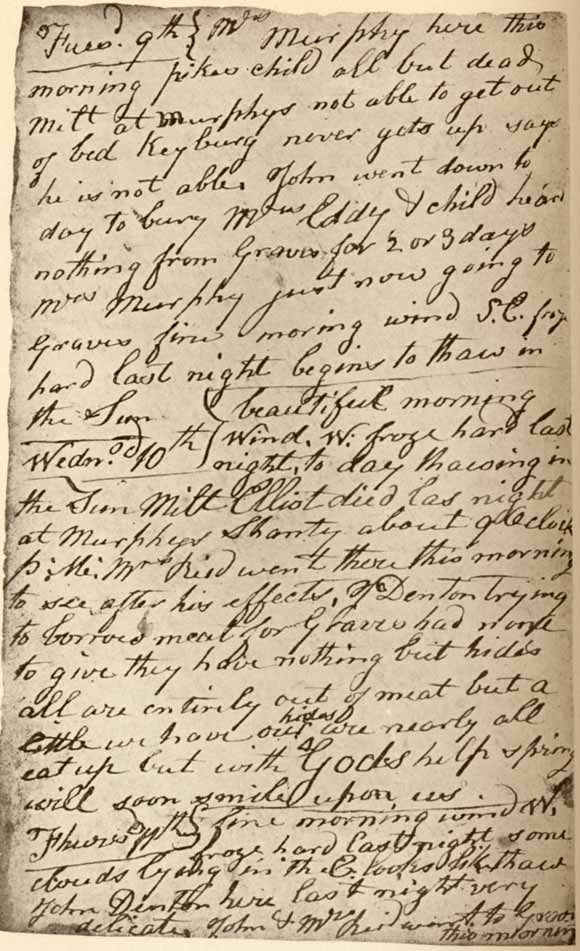 Tuesd. 9th { Mrs Murphy here this
morning pikes child all but dead
Milt at murphys not able to get out
of bed Keyburg never gets up says
he is not able. John went down to
day to bury Mrs Eddy & child heard
nothing from Graves for 2 or 3 days
Mrs Murphy just now going to
Graves fine moring wind S.E. froze
hard last night begins to thaw in
the Sun
Wednsd 10th { beautiful morning
Wind. W. froze hard last
night, to day thawing in
the Sun Milt Elliot died las night
at Murphys Shanty about 9 Oclock
P.M. Mrs Reid went there this morning
to see after his effects, J Denton trying
to borrow meat for Graves had none
to give they have nothing but hides
all are entirely out of meat but a
little we have our hides are nearly all
eat up but with Gods help spring
will soon smile upon us.
Thursd 11th { fine morning wind W.
froze hard last night some
clouds lying in the E. looks like thaw
John Denton here last night very
delicate. John & Mrs Reid went to Graves
this morning